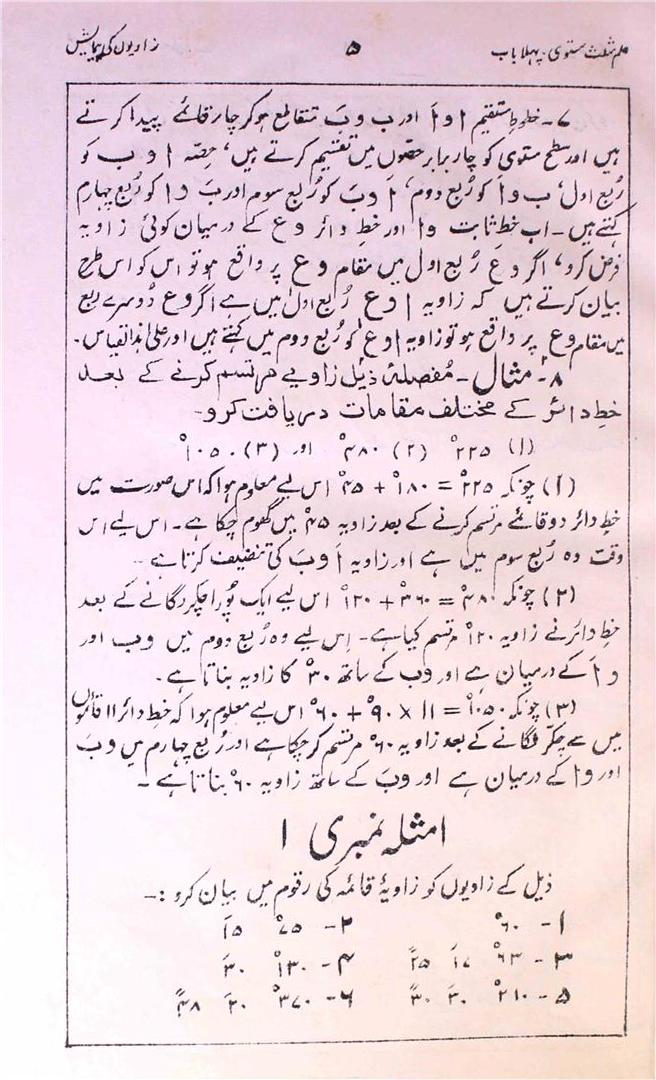 علم مثلث مستوی۔ پہلا باب ۵ زاویوں کی پیمایش
۷۔ خطوطِ مستقیم ا و اَ اور ب و بَ متقاطع ہو کر چار قائمے پیدا کرتے
ہیں اور سطح مستوی کو چار برابر حصوں میں تقسیم کرتے ہیں، حصّہ ا و ب کو
رُبع اول، ب و اَ کو رُبع دوم، اَ و بَ کو رُبع سوم اور بَ و ا کو رُبع چہارم
کہتے ہیں۔ اب خطِ ثابت و ا اور خطِ دائر و ع کے درمیان کوئی زاویہ
فرض کرو، اگر و ع رُبع اول میں مقام و ع پر واقع ہو تو اس کو اس طرح
بیان کرتے ہیں کہ زاویہ ا و ع رُبع اول میں ہے اگر و ع دُوسرے ربع
میں مقام و ع پر واقع ہو تو زاویہ ا و ع کو رُبع دوم میں کہتے ہیں اور علیٰ ہذا القیاس۔
۸۔ مثال۔ مُفصلۂ ذیل زاویے مرتسم کرنے کے بعد
خطِ دائر کے مختلف مقامات دریافت کرو۔
(۱) ۲۲۵° (۲) ۴۸۰° اور (۳) ۱۰۵۰°
(۱) چونکہ ۲۲۵° = ۱۸۰° + ۴۵° اس لیے معلوم ہوا کہ اس صورت میں
خطِ دائر دو قائمے مرتسم کرنے کے بعد زاویہ ۴۵° میں گھوم چکا ہے۔ اس لیے اس
وقت وہ رُبع سوم میں ہے اور زاویہ اَ و بَ کی تنصیف کرتا ہے۔
(۲) چونکہ ۴۸۰° = ۳۶۰° + ۱۲۰° اس لیے ایک پُورا چکر لگانے کے بعد
خطِ دائر نے زاویہ ۱۲۰° مرتسم کیا ہے۔ اِس لیے وہ رُبع دوم میں و ب اور
و اَ کے درمیان ہے اور و ب کے ساتھ ۳۰° کا زاویہ بناتا ہے۔
(۳) چونکہ ۱۰۵۰° = ۱۱ × ۹۰° + ۶۰° اس لیے معلوم ہوا کہ خطِ دائر ۱۱ قائموں
میں سے چکر لگانے کے بعد زاویہ ۶۰° مرتسم کر چکا ہے اور رُبع چہارم میں و بَ
اور و ا کے درمیان ہے اور و بَ کے ساتھ زاویہ ۶۰° بناتا ہے۔
امثلہ نمبری ۱
ذیل کے زاویوں کو زاویۂ قائمہ کی رقوم میں بیان کرو :۔
۱۔ ۶۰° ۲۔ ۷۵° ۱۵َ
۳۔ ۶۳° ۱۷َ ۲۵ً ۴۔ ۱۳۰° ۳۰َ
۵۔ ۲۱۰° ۳۰َ ۳۰ً ۶۔ ۳۷۰° ۲۰َ ۴۸ً